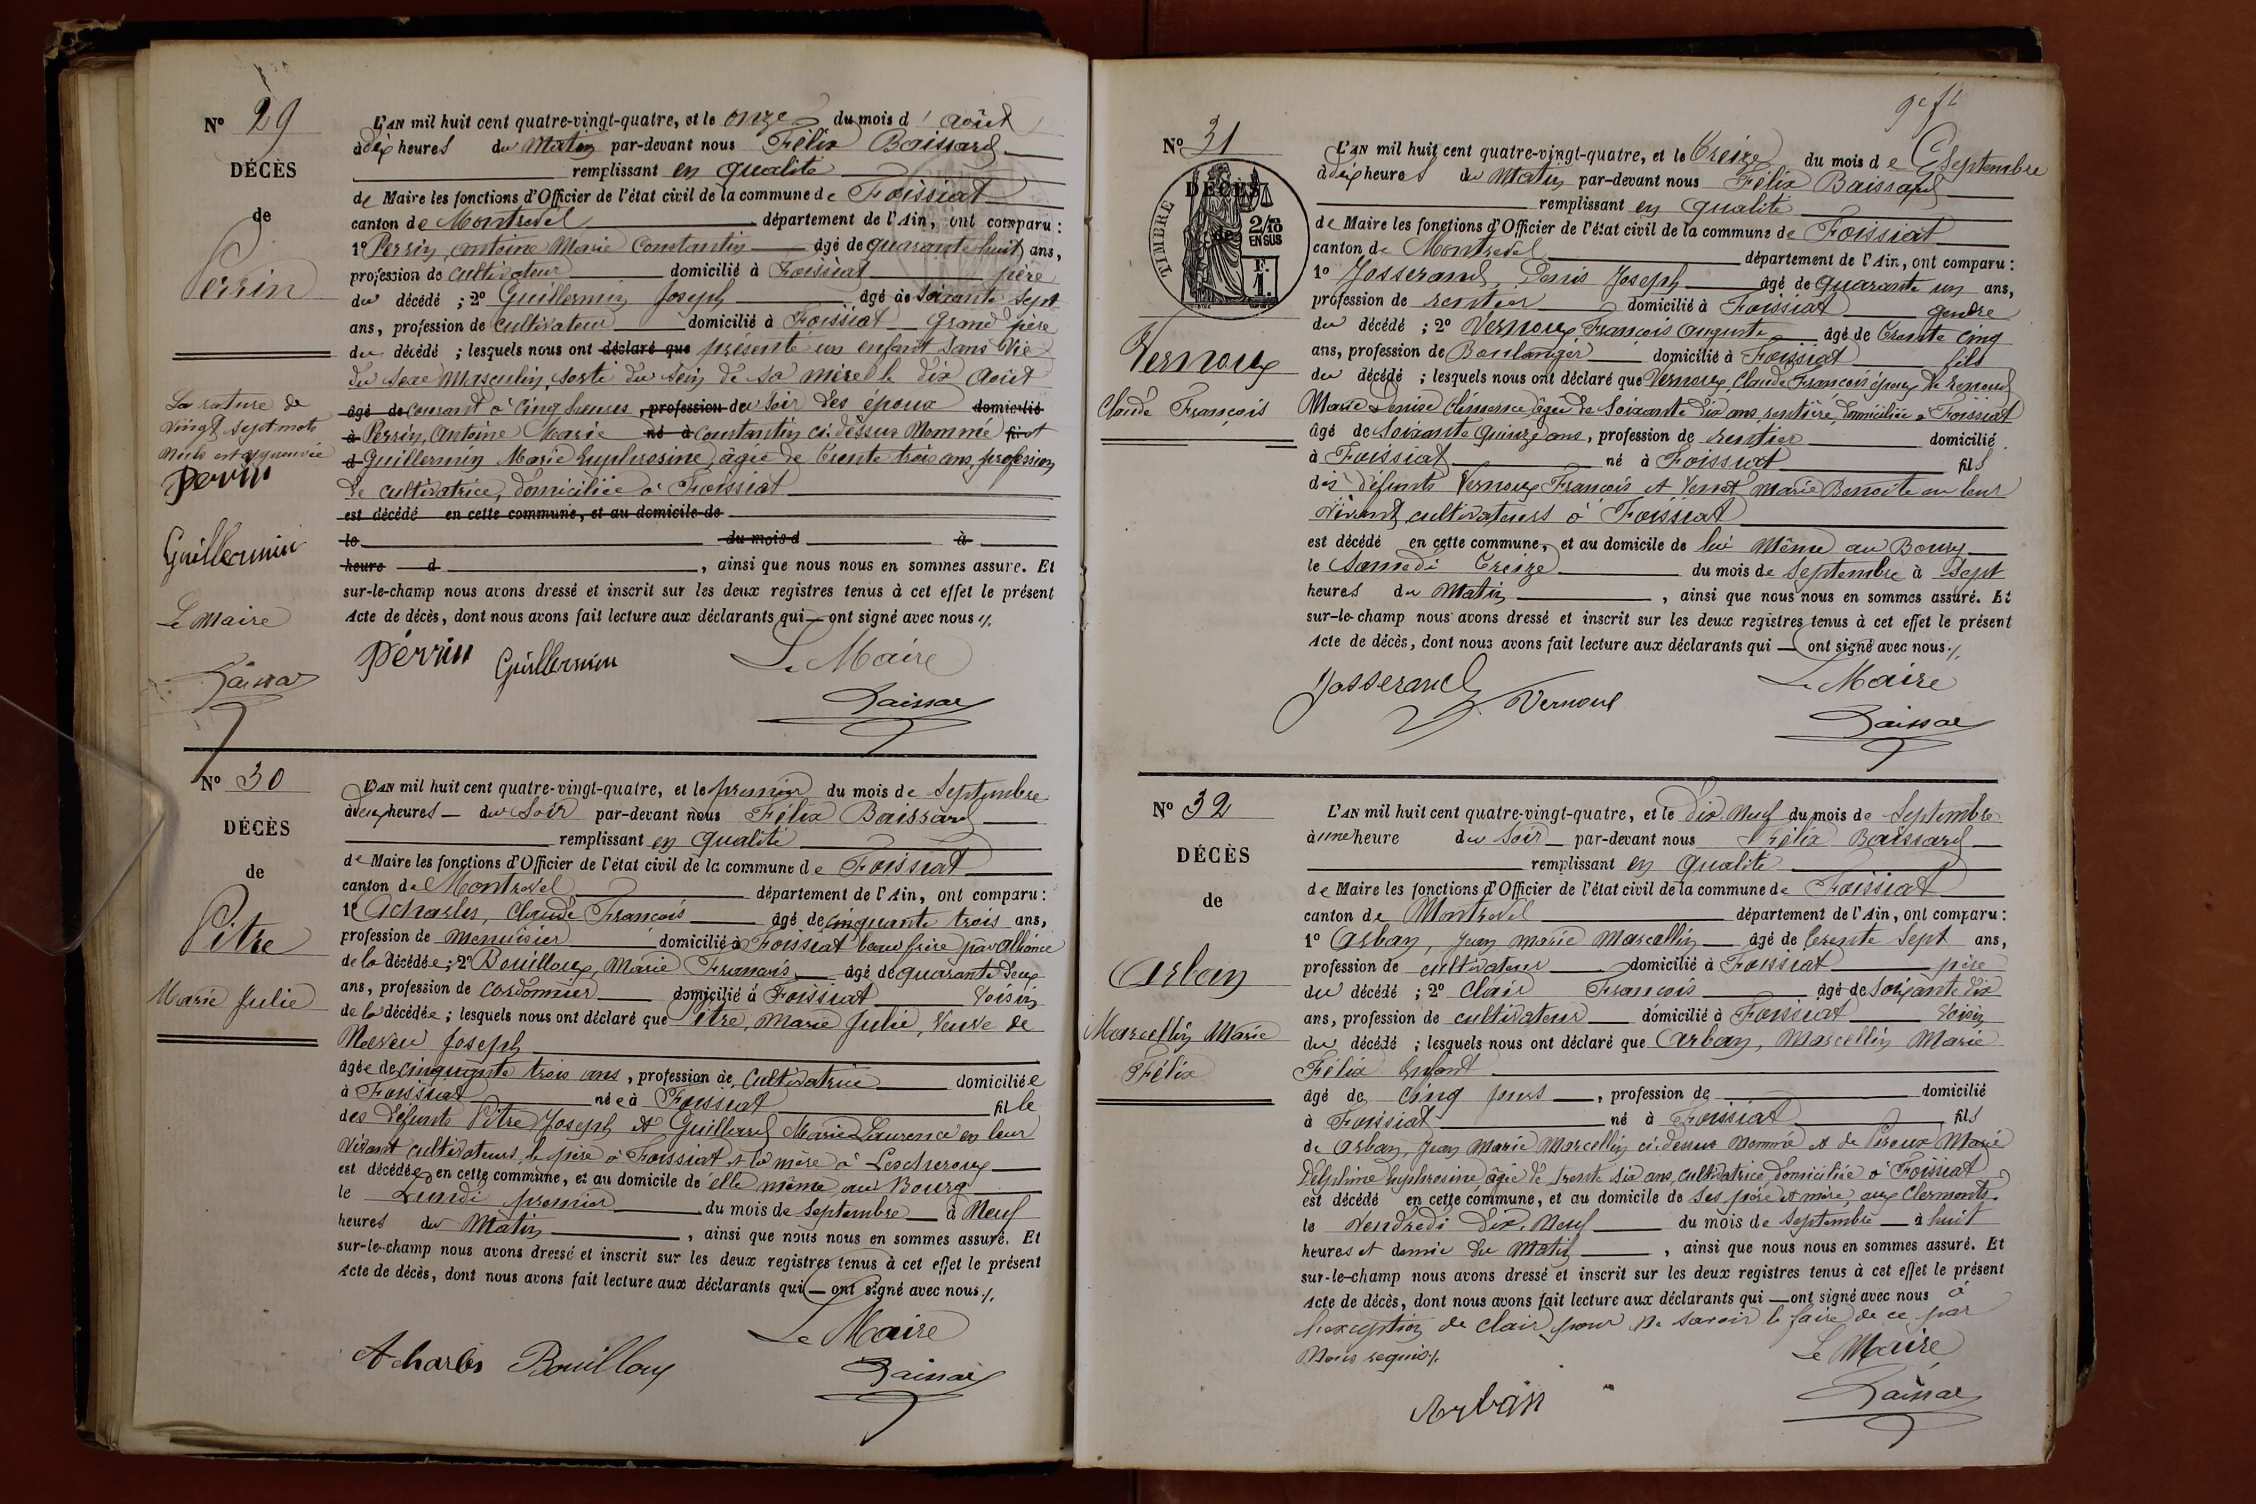 Nº 29
DÉCÈS
de
Perrin
La rature de
vingt sept mots
nuls est approuvée
Perrin
Guillermin
Le Maire
L'AN mil huit cent quatre-vingt-quatre, et le onze du mois d'août
à dix heures du Matin par-devant nous Félix Baissard
remplissant en qualité
de Maire les fonctions d'Officier de l'état civil de la commune de Foissiat
canton de Montrevel département de l'Ain, ont comparu :
1º Perrin, Antoine Marie Constantin âgé de quarante huit ans,
profession de cultivateur domicilié à Foissiat père
du décédé ; 2º Guillermin Joseph âgé de soixante sept
ans, profession de cultivateur domicilié à Foissiat Grand père
du décédé ; lesquels nous ont déclaré que présenté un enfant sans vie
du sexe Masculin, sorti du sein de sa mère le dix Août
âgé de courant à cinq heures , profession du soir des époux domicilié
à Perrin, Antoine Marie né à Constantin ci-dessus Nommé fil et
d Guillermin Marie Euphrosine, âgée de trente trois ans, profession
de cultivatrice, domiciliée à Foissiat
est décédé en cette commune, et au domicile de
le du mois d à
heure d , ainsi que nous nous en sommes assuré. Et
sur-le-champ nous avons dressé et inscrit sur les deux registres tenus à cet effet le présent
Acte de décès, dont nous avons fait lecture aux déclarants qui ont signé avec nous ./.
Perrin Guillermin Le Maire
Nº 30
DÉCÈS
de
Pitre
Marie Julie
L'AN mil huit cent quatre-vingt-quatre, et le premier du mois de Septembre
à deux heures du Soir par-devant nous Félix Baissard
remplissant en qualité
de Maire les fonctions d'Officier de l'état civil de la commune de Foissiat
canton de Montrevel département de l'Ain, ont comparu :
1º Acharles, Claude François âgé de cinquante trois ans,
profession de menuisier domicilié à Foissiat beau frère par alliance
de la décédée ; 2º Bouilloux, Marie François âgé de quarante deux
ans, profession de cordonnier domicilié à Foissiat voisin
de la décédée ; lesquels nous ont déclaré que Pitre, Marie Julie, Veuve de
Joseph
âgée de cinquante trois ans , profession de cultivatrice domiciliée
à Foissiat née à Foissiat fille
des défunts Pitre Joseph et Guillard Marie Laurence en leur
vivant cultivateurs, le père à Foissiat et la mère à Lescheroux
est décédée en cette commune, et au domicile de elle même, au Bourg
le Lundi premier du mois de Septembre à Neuf
heures du Matin , ainsi que nous nous en sommes assuré. Et
sur-le-champ nous avons dressé et inscrit sur les deux registres tenus à cet effet le présent
Acte de décès, dont nous avons fait lecture aux déclarants qui ont signé avec nous ./.
Le Maire
Acharles Bouilloux
Nº 31
TIMBRE
DÉCÈS
de
2/10
EN SUS
F.
1.
Vernoux
Claude François
L'AN mil huit cent quatre-vingt-quatre, et le Treize du mois de Septembre
à dix heures du Matin par-devant nous Félix Baissard
remplissant en qualité
de Maire les fonctions d'Officier de l'état civil de la commune de Foissiat
canton de Montrevel département de l'Ain, ont comparu :
1º Josserand, Denis Joseph âgé de quarante un ans,
profession de rentier domicilié à Foissiat gendre
du décédé ; 2º Vernoux François Auguste âgé de trente cinq
ans, profession de Boulanger domicilié à Foissiat fils
du décédé ; lesquels nous ont déclaré que Vernoux, Claude François époux de Renoud
Marie Denise Clémence âgée de soixante dix ans, rentière, domiciliée à Foissiat
âgé de soixante quinze ans, profession de rentier domicilié
à Foissiat né à Foissiat fils
des défunts Vernoux François et Marie Benoite en leur
vivant cultivateurs à Foissiat
est décédé en cette commune, et au domicile de lui Même au Bourg
le Samedi Treize du mois de Septembre à Sept
heures du Matin , ainsi que nous nous en sommes assuré. Et
sur-le-champ nous avons dressé et inscrit sur les deux registres tenus à cet effet le présent
Acte de décès, dont nous avons fait lecture aux déclarants qui ont signé avec nous ./.
Josserand Vernoux Le Maire
Nº 32
DÉCÈS
de
Arban
Marcellin Marie
Félix
L'AN mil huit cent quatre-vingt-quatre, et le Dix Neuf du mois de Septembre
à une heure du Soir par-devant nous Félix Baissard
remplissant en qualité
de Maire les fonctions d'Officier de l'état civil de la commune de Foissiat
canton de Montrevel département de l'Ain, ont comparu :
1º Arban, Jean Marie Marcellin âgé de trente sept ans,
profession de cultivateur domicilié à Foissiat père
du décédé ; 2º Clair François âgé de soixante dix
ans, profession de cultivateur domicilié à Foissiat voisin
du décédé ; lesquels nous ont déclaré que Arban, Marcellin Marie
Félix Enfant
âgé de cinq jours , profession de domicilié
à Foissiat né à Foissiat fils
de Arban, Jean Marie Marcellin ci-dessus Nommé et de Piroux Marie
Delphine Euphrosine âgée de trente six ans, cultivatrice, domiciliée à Foissiat
est décédé en cette commune, et au domicile de ses père et mère, aux Clermonts
le Vendredi Dix Neuf du mois de Septembre à huit
heures et demie du Matin , ainsi que nous nous en sommes assuré. Et
sur-le-champ nous avons dressé et inscrit sur les deux registres tenus à cet effet le présent
Acte de décès, dont nous avons fait lecture aux déclarants qui ont signé avec nous à
l'exception de Clair pour ne savoir le faire de ce par
Nous requis ./.
Le Maire
Arban